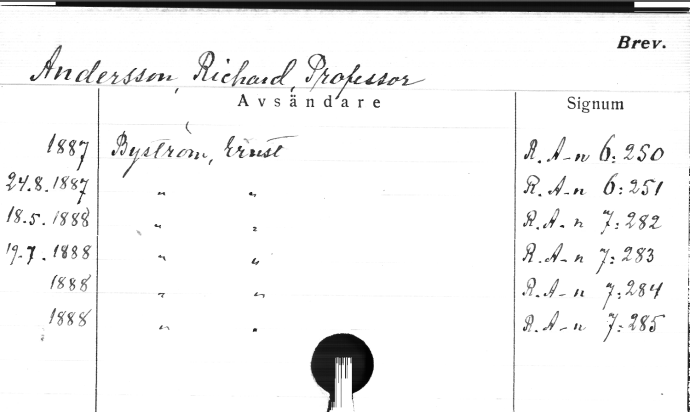 Brev.
Andersson, Richard, Professor
Avsändare Signum
1887 Byström, Ernst R. A-n 6:250
24.8.1887 " " R. A-n 6:251
18.5.1888 " " R. A-n 7:282
19.7.1888 " " R. A-n 7:283
1888 " " R. A-n 7:284
1888 " " R. A-n 7:285